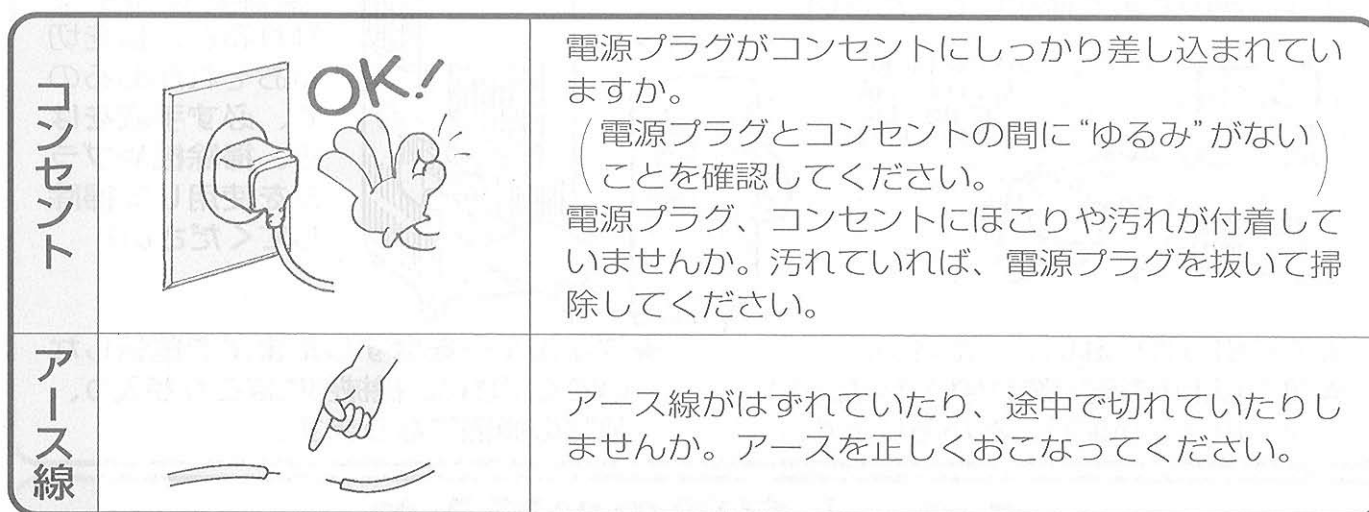 コンセント
OK!
電源プラグがコンセントにしっかり差し込まれてい
ますか。
(電源プラグとコンセントの間に“ゆるみ”がない
ことを確認してください。)
電源プラグ、コンセントにほこりや汚れが付着して
いませんか。汚れていれば、電源プラグを抜いて掃
除してください。
アース線
アース線がはずれていたり、途中で切れていたりし
ませんか。アースを正しくおこなってください。